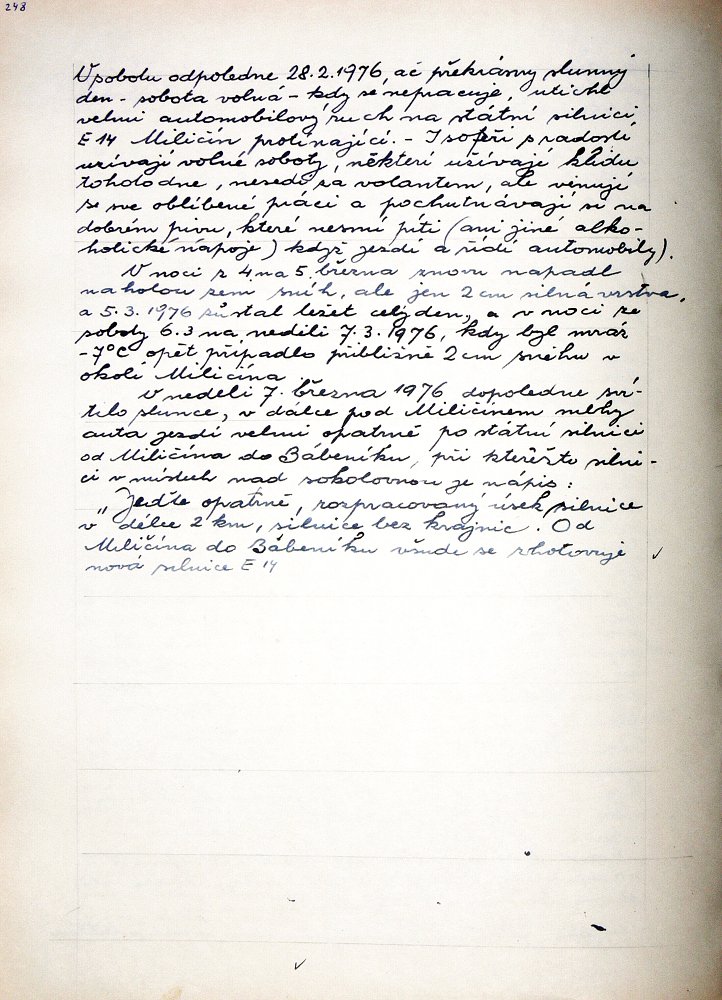 248
V sobotu odpoledne 28.2.1976, ač překrásný slunný
den - sobota volná - kdy se nepracuje, utichl
velmi automobilový ruch na státní silnici
E 14 Miličín protínající. - I šoféři s radostí
užívají volné soboty, někteří užívají klidu
tohoto dne, nesedí za volantem, ale věnují
se své oblíbené práci a pochutnávají si na
dobrém pivu, které nesmí píti (ani jiné alko-
holické nápoje) když jezdí a řídí automobily).
V noci z 4 na 5. března znovu napadl
na holou zem sníh, ale jen 2 cm silná vrstva,
a 5.3.1976 zůstal ležet celý den, a v noci ze
soboty 6.3 na neděli 7.3.1976, kdy byl mráz
-7°C opět připadlo přibližně 2 cm sněhu v
okolí Miličína
V neděli 7. března 1976 dopoledne sví-
tilo slunce, v dálce pod Miličínem mlhy
auta jezdí velmi opatrně po státní silnici
od Miličína do Bábeníku, při kteréžto silni-
ci v místech nad sokolovnou je nápis:
„Jeďte opatrně, rozpracovaný úsek silnice
v délce 2 km, silnice bez krajnic. Od
Miličína do Bábeníku všude se zhotovuje
nová silnice E 14